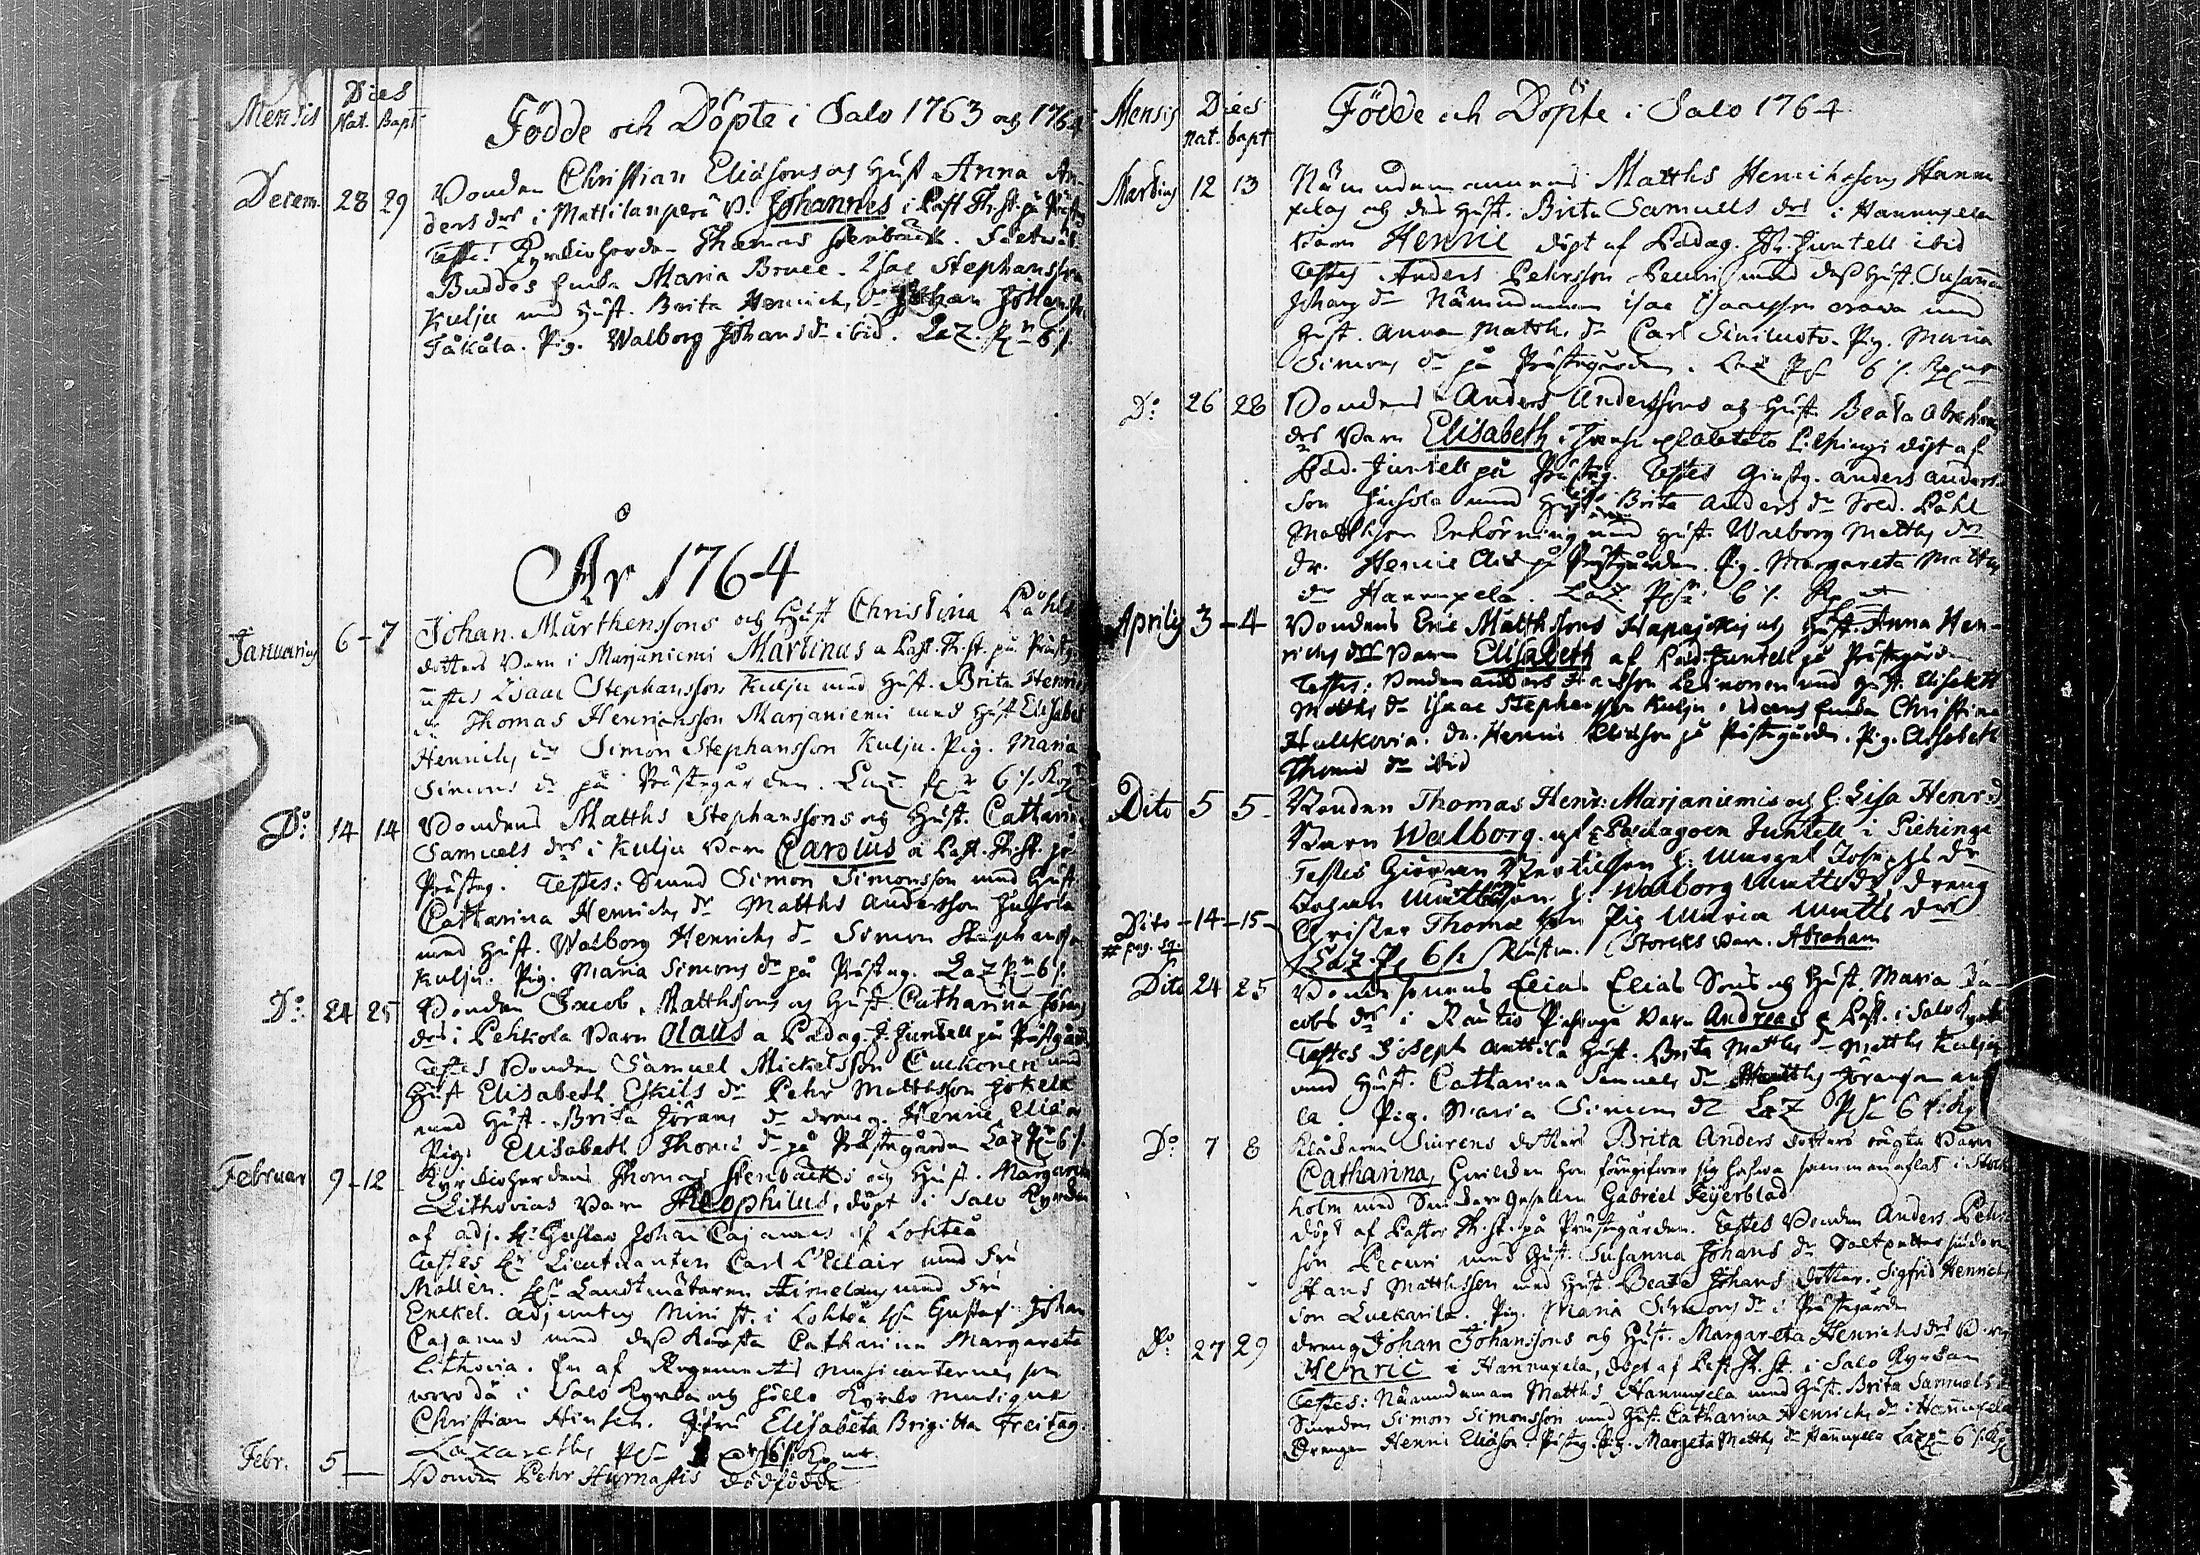 Mensis Dies
Nat. Bapt.
Födde och Döpte i Salo 1763 och 1764
Decem. 28 29 Bonden Christian Eliæsons och Hust. Anna An-
ders drs i Mattilanperä B. Johannes
Testes: Kyrckioherden Thomas Stenbäck.
Buddes Enka Maria Bruce. Isac Stephansson
Kulju med Hust. Brita Henrichs dr Johan Johansson
Pig. Walborg Johans dr ibid. Laz. 6
År 1764
Januarius 6-7 Johan Mårthenssons och Hust Christina Påhls
dotters Barn i Marjaniemi Martinus a Past. på Prästg.
testes Isaac Stephansson Kulju med Hust. Brita Henrichs
dr Thomas Henricsson Marjaniemi med Hust Elisabet
Henrichs dr Simon Stephansson Kulju. Pig. Maria
Simons dr på Prästegården. Laz. 6
Do: 14 14 Bondens Matths Stephanssons och Hust. Catharina
Samuels drs i Kulju Barn Carolus a Past. på
Prästeg. Testes: Simon Simonsson med Hust
Catharina Henrichs dr Matths Andersson
med Hust. Walborg Henrichs dr Simon Stephansson
Kulju. Pig. Maria Simons dr på Prästeg. Laz 6
Do: 24 25 Bonden Jacob Matthssons och Hust Catharina Jörans
drs i Pehkola Barn Olaus a Pædag. J. Juntell på Prästgård
Testes Bonden Samuel Mickelsson Cuckonen med
Hust Elisabeth Eskils dr Pehr Matthsson Jokela
med Hust. Brita Jörans dr dreng. Henric Eliæ
Pig. Elisabeth Thomæ dr på Prästegården Laz 6
Februar 9-12 Kyrckioherdens Thomas Stenbäcks och Hust. Margareta
Lithovias Barn Theophilus, döpt i Salo Kyrckia
af adj. Hr Gustav Johan Cajanus i Lochteå
Testes Hr Lieutenanten Carl L'Eclair med Fru
Mollen. Hr Landtmätaren Fimelang med Fru
Enckel. Adjunctus Minist. i Lohteå Hr Gustaf Johan
Cajanus med dess Kiæresta Catharina Margareta
Lithovia. En af Regementets musicanterne som
woro då i Salo Kyrcka och höllo Kyrko musique
Christian Hinsch. Jfru Elisabeta Brigitta Freitag.
Lazareths
Febr. 5 Bonden Pehr Hurnastis dödfödde
Mensis Dies
nat. bapt
Födde och Döpte i Salo 1764
Martius 12 13 Nämndemannens Matths Henrichsons Hannu
pelas och dess Hust. Brita Samuels drs i Hannupela
Barn Henric döpt af Pædag. Hr. Juntell ibid
Testes Anders Pehrsson Pecuri med dess Hust. Susanna
Johans dr Nämndeman Isac Isacsson med
Hust. Anna Matths dr Carl Pig. Maria
Simons dr på Prästegården. Laz 6
Do: 26 28 Bondens Anders Anderssons och Hust. Beata Abrahams
drs Barn Elisabeth döpt af
Pæd. Juntell på Prästeg. Testes Giestg. Anders Anders-
son med Hust. Brita Anders dr Sold. Påhl
Matthsson Enhörning med Hust. Walborg Matths dr
Dr. Henric Eliæ på Prästgården. Pig. Margareta Matths
dr Hannupela. Laz. 6
Aprilis 3-4 Bondens Eric Matthssons Hapajokis och Hust. Anna Hen-
richs drs Barn Elisabeth af Pæd. Juntell på Prästegården
Testes: Bonden Anders Leinonen med Hust. Elisabeth
Matths dr Isaac Stephansson Kulju. Enka Christina
dr. Henric Eliæson på Prästegården. Pig. Elisabeth
Thomæ dr ibid
Dito 5 5 Bonden Thomas Henr: Marjaniemis och H. Lisa Henr. d
Barn Walborg af Pædagoen Juntell i Piehinge
Testes Giöran H. Marget Josephs dr
Johan Mårthsson H. Walborg Matts dr, dreng
Dito 14-15 Christer Thomæ son Pig Maria Matts dr
# pag. sq. Laz. 6 Storcks Barn. Abraham
Dito 24 25 Bonde sonens Elias Eliæ Sons och Hust. Maria Ja-
cobs drs i Rautio Piehinge Barn Andreas a Past. i Salo Kyrka
Testes Joseph Anttila Hust. Brita Matths dr Matths Kulju
med Hust. Catharina Samuels dr Matths Jöransson
Pig. Maria Simons dr Laz 6
Do 7 8 dotters Brita Anders dotters oägta Barn
Catharina, hwilcken hon föregifwer sig hafwa sammanaflat i Stock-
holm med Gesellen Gabriel Feijerblad
döpt af Pastor på Prästgården. Testes Bonden Anders Pehrs
son Pecuri med Hust. Susanna Johans dr Saltpetter siudaren
Hans Matthsson med Hust. Beata Johans dotter. Sigfrid Henrichs
son Luckarila. Pig. Maria Simons dr i Prästegården
Do. 27 29 dreng Johan Johanssons och Hust. Margareta Henrichs drs B.
Henric i Hannupela, döpt af Past. i Salo Kyrckan
Testes: Nämndeman Matths Hannupela med Hust. Brita Samuels dr
Simon Simonsson med Hust. Catharina Henrichs dr i Hannupela
Drengen Henric Eliæson Prästeg. Pig. Margeta Matths dr Hannupela Laz 6